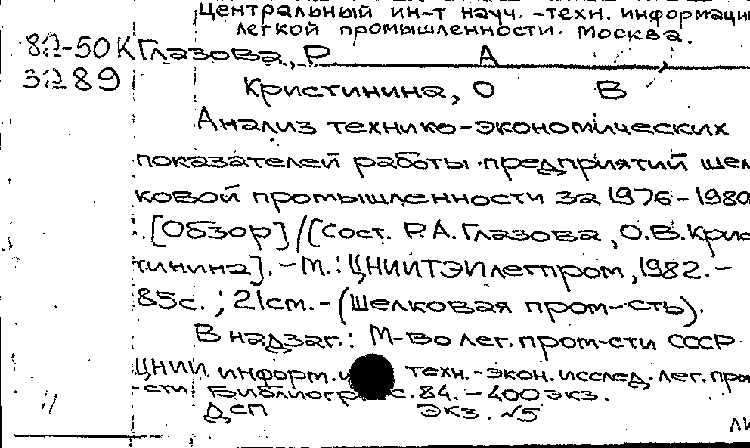 Центральный ин-т науч.-техн. информаци
легкой промышленности. Москва.
82-50К Глазова, Р А
3289 Кристинина, О В
Анализ технико-экономических
показателей работы предприятий шел
ковой промышленности за 1976-1980
[Обзор] / [Сост. Р.А. Глазова, О.В. Крис
тинина]. - М.: ЦНИИТЭИлегпром, 1982. -
85с.; 21см. - (Шелковая пром-сть).
В надзаг.: М-во лег. пром-сти СССР
ЦНИИ информ. и техн.-экон. исслед. лег. про
-сти Библиогр с. 84. - 400 экз.
ДСП экз. №5